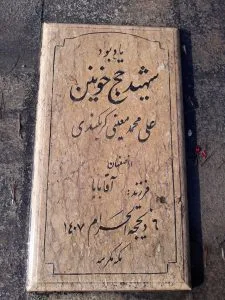 یادبود
شهید حج خونین
علی محمد معینی کریکندی
از اصفهان
فرزند: آقابابا
٦ ذیحجه الحرام ۱٤۰۷
مکه مکرمه